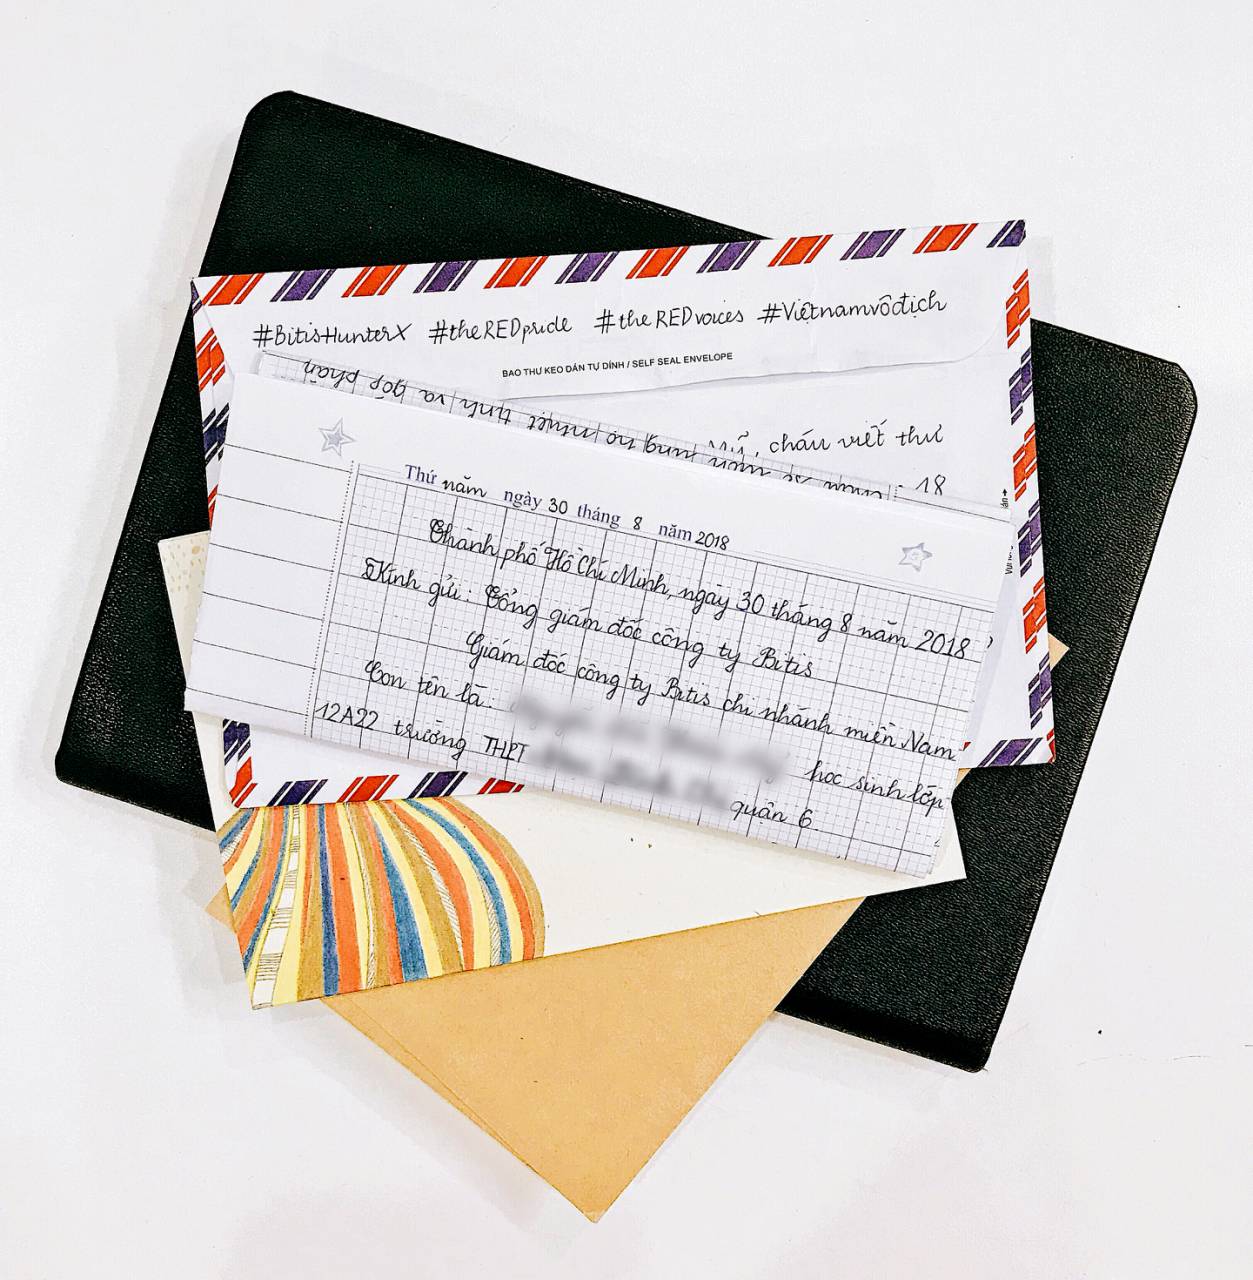 #BitisHunterX #theREDpride #theREDvoices #Việtnamvôđịch
BAO THƯ KEO DÁN TỰ DÍNH / SELF SEAL ENVELOPE
nhiệt tình và góp phần
cháu viết thư
18
Thứ năm ngày 30 tháng 8 năm 2018
Thành phố Hồ Chí Minh, ngày 30 tháng 8 năm 2018
Kính gửi: Tổng giám đốc công ty Bitis
Giám đốc công ty Bitis chi nhánh miền Nam
Con tên là: học sinh lớp
12A22 trường THPT quận 6.